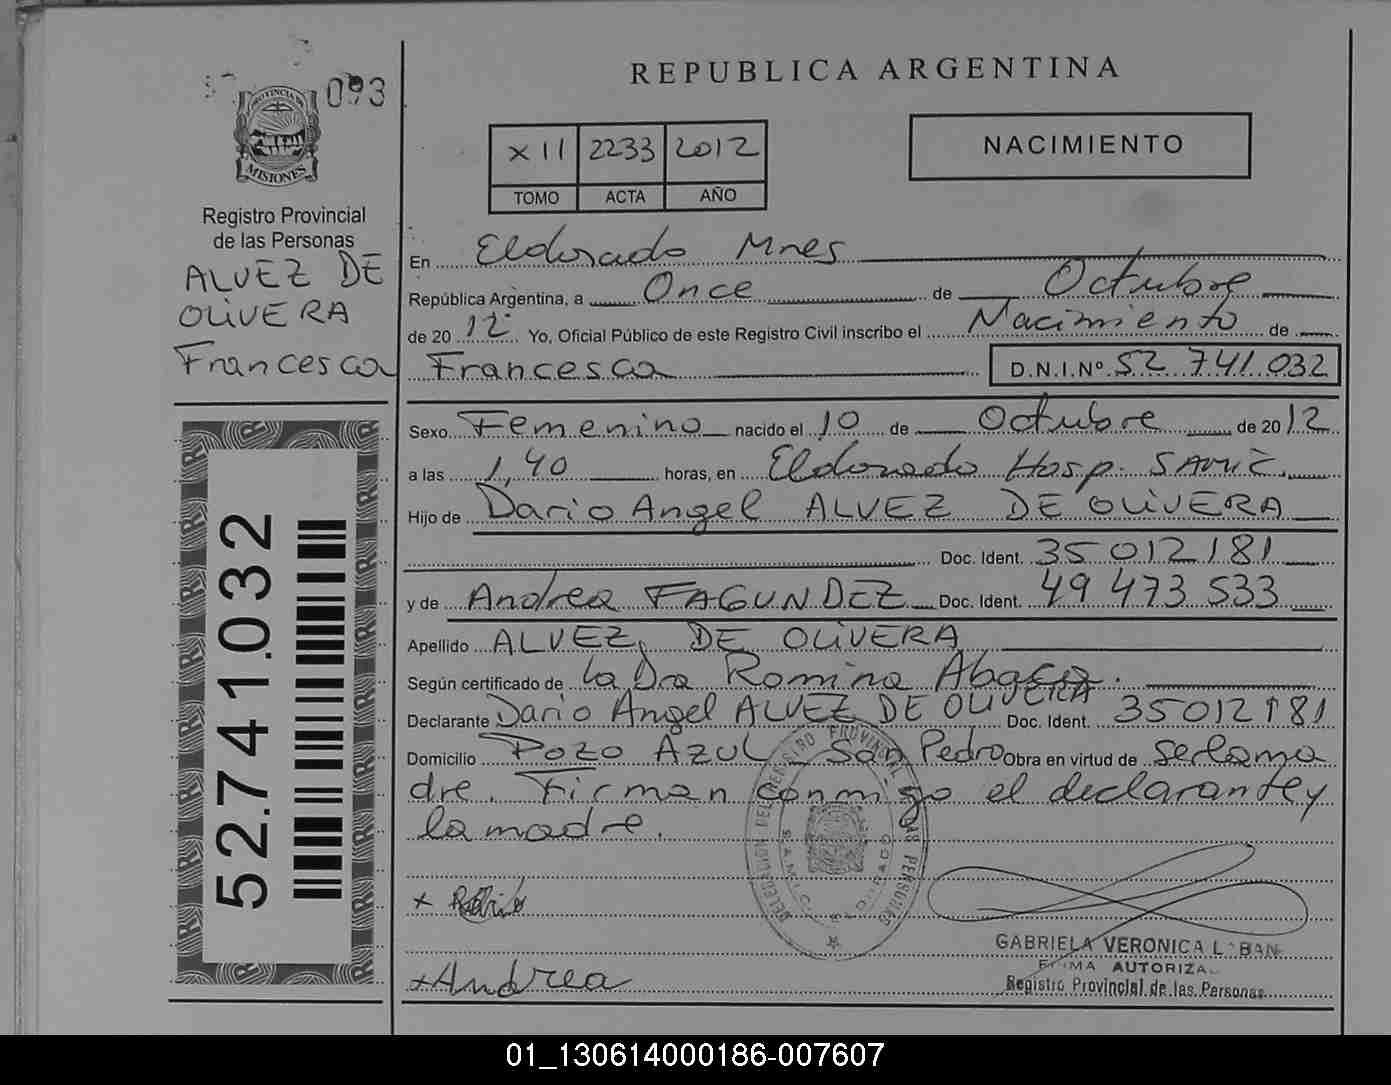 093
PROVINCIA DE
MISIONES
Registro Provincial
de las Personas
ALVEZ DE
OLIVERA
Francesca
52.741.032
REPUBLICA ARGENTINA
XII 2233 2012
TOMO ACTA AÑO
NACIMIENTO
En Eldorado Mnes
República Argentina, a Once de Octubre
de 2012 Yo, Oficial Público de este Registro Civil inscribo el Nacimiento de
Francesca D.N.I.Nº 52 741 032
Sexo Femenino nacido el 10 de Octubre de 2012
a las 1,40 horas, en Eldorado Hosp. SAMIC
Hijo de Dario Angel ALVEZ DE OLIVERA
Doc. Ident. 35 012 181
y de Andrea FAGUNDEZ Doc. Ident. 49 473 533
Apellido ALVEZ DE OLIVERA
Según certificado de la Dra Romina
Declarante Dario Angel ALVEZ DE OLIVERA Doc. Ident. 35012181
Domicilio POZO AZUL San Pedro Obra en virtud de ser la ma
dre. Firman conmigo el declarante y
la madre.
DELEGACION DEL REGISTRO PROVINCIAL DE LAS PERSONAS
SAMIC ELDORADO
+ Andrea
GABRIELA VERONICA
FIRMA AUTORIZA
Registro Provincial de las Personas
01_130614000186-007607